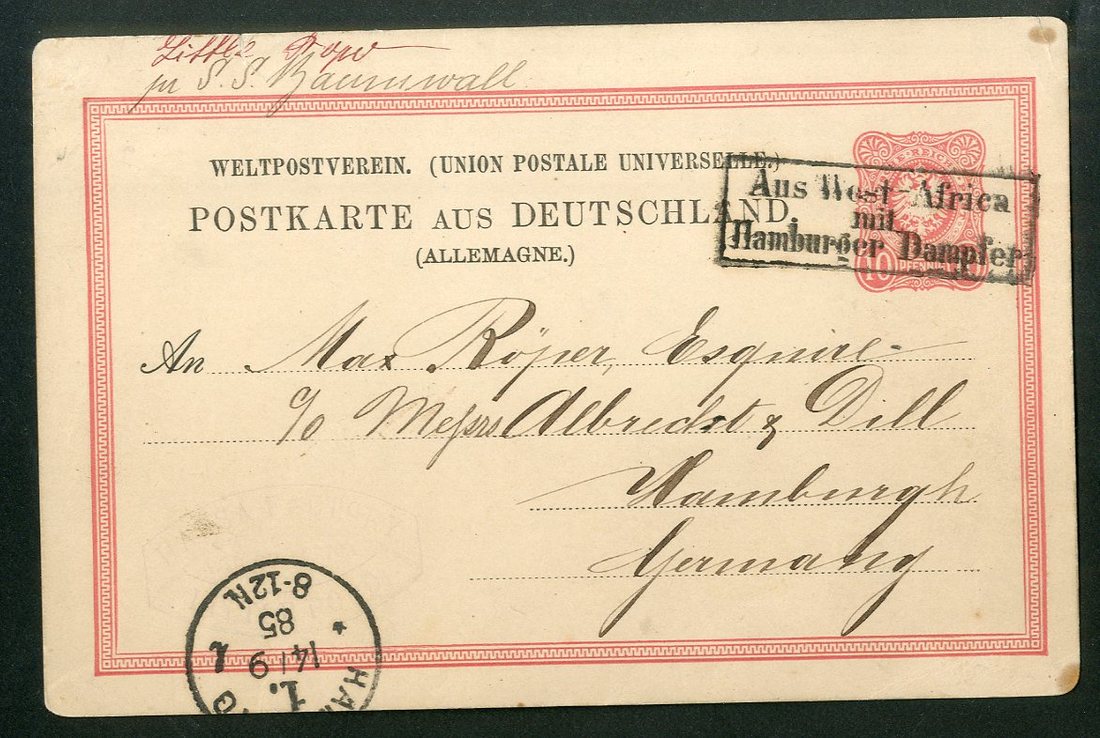 Little Popo
pr S. S. Baumwall
WELTPOSTVEREIN. (UNION POSTALE UNIVERSELLE.)
POSTKARTE AUS DEUTSCHLAND.
(ALLEMAGNE.)
Aus West-Africa
mit
Hamburger Dampfer
10 PFENNIG
An Max Röper, Esquire
c/o Messrs Albrecht & Dill
Hamburgh
Germany
HA
1.
14/9
85
8-12N